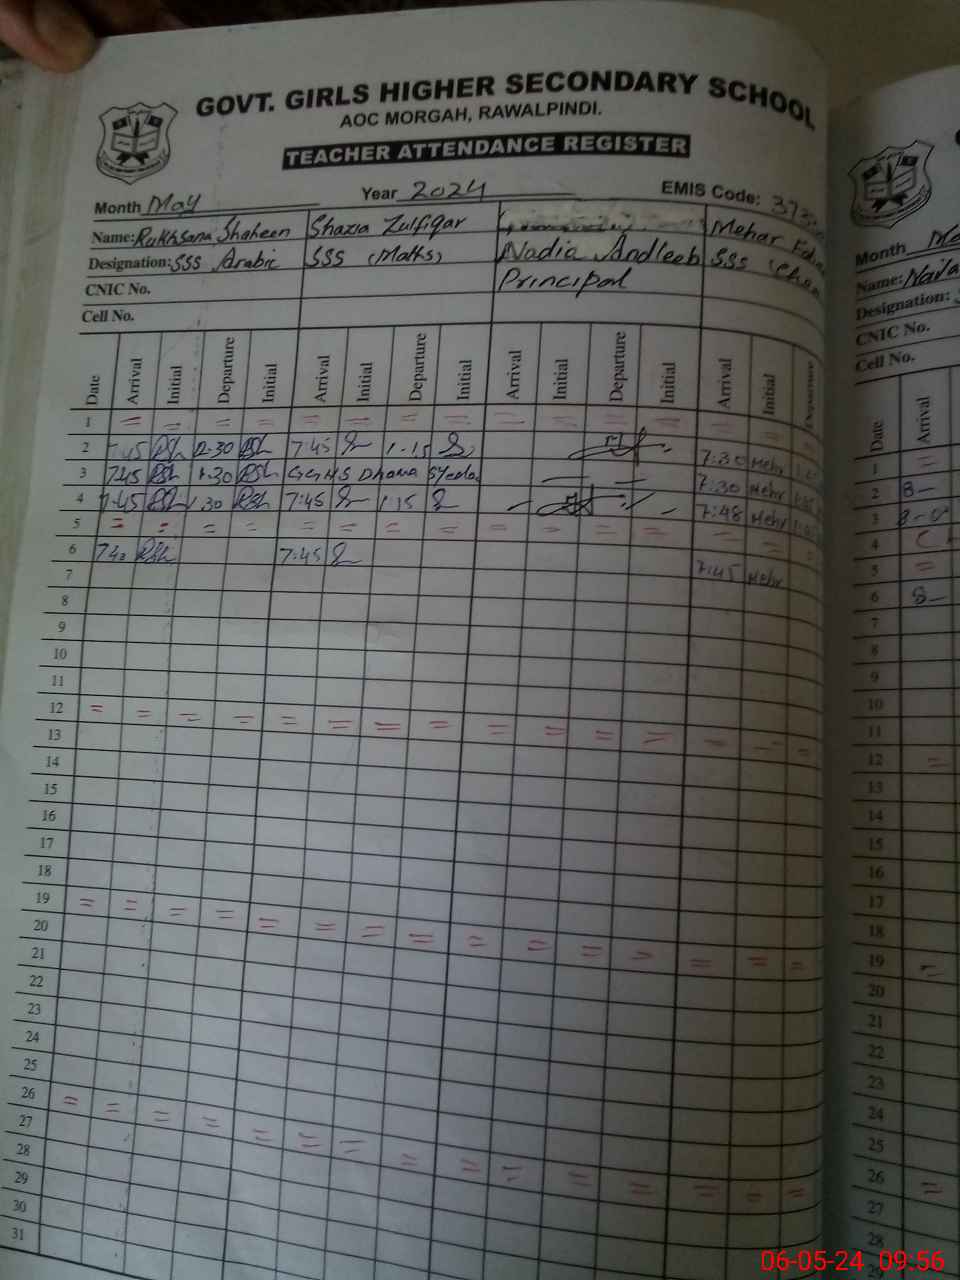 GOVT. GIRLS HIGHER SECONDARY SCHOOL
AOC MORGAH, RAWALPINDI.
TEACHER ATTENDANCE REGISTER
Month May Year 2024 EMIS Code: 373
Name: Rukhsana Shaheen Shazia Zulfiqar Mehar
Designation: SSS Arabic SSS (Maths) Nadia Andleeb SSS
CNIC No. Principal
Cell No.
Date Arrival Initial Departure Initial Arrival Initial Departure Initial Arrival Initial Departure Initial Arrival Initial Departure
1 = = = = = = = = = = = = = =
2 7:45 RSh 12-30 RSh 7:45 1-15 7:30 Mehr
3 7:45 RSh 1:30 RSh G.G.H.S Dhama Syeda 7:30 Mehr
4 7:45 RSh 1:30 RSh 7:45 1:15 7:48 Mehr
5 = = = = = = = = = = = = = =
6 7:40 RSh 7:45 7:45 Mehr
7
8
9
10
11
12 = = = = = = = = = = = = = = =
13
14
15
16
17
18
19 = = = = = = = = = = = = = = =
20
21
22
23
24
25
26 = = = = = = = = = = = = = = =
27
28
29
30
31
Month
Name: Naila
Designation:
CNIC No.
Cell No.
Date Arrival
1 =
2 8-
3
4
5 =
6 8-
7
8
9
10
11
12 =
13
14
15
16
17
18
19 =
20
21
22
23
24
25
26 =
27
28
06-05-24 09:56